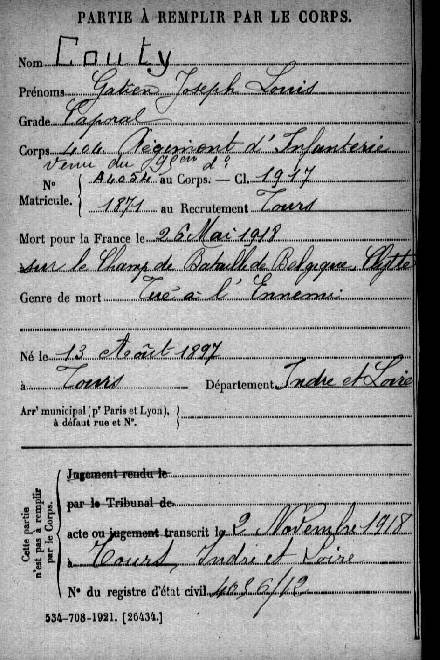 PARTIE À REMPLIR PAR LE CORPS.
Nom Couty
Prénoms Gatien Joseph Louis
Grade Caporal
Corps 404 Régiment d'Infanterie
venu du
N° Matricule. A4054 au Corps. — Cl. 1917
1871 au Recrutement Tours
Mort pour la France le 26 Mai 1918
sur le Champ de Bataille de Belgique Clytte
Genre de mort Tué à l'Ennemi
Né le 13 Août 1897
à Tours Département Indre et Loire
Arrt municipal (pr Paris et Lyon),
à défaut rue et N°.
Cette partie n'est pas à remplir par le Corps.
Jugement rendu le
par le Tribunal de
acte ou jugement transcrit le 2 Novembre 1918
à Tours Indre et Loire
N° du registre d'état civil
534-708-1921. [26434.]